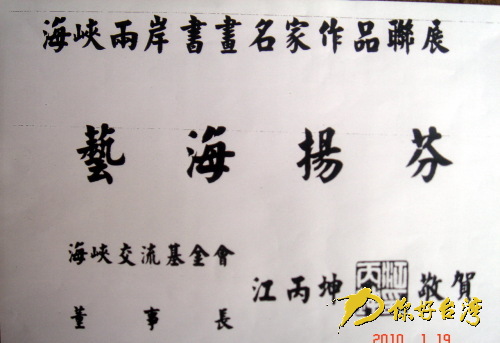 海峽兩岸書畫名家作品聯展
藝海揚芬
海峽交流基金會
董事長
江丙坤 敬賀
你好台湾
2010 1 19